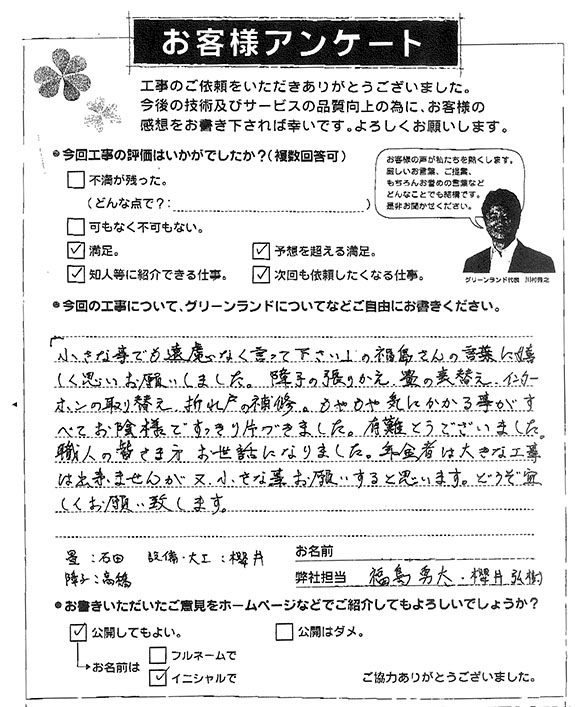 お客様アンケート
工事のご依頼をいただきありがとうございました。
今後の技術及びサービスの品質向上の為に、お客様の
感想をお書き下されば幸いです。よろしくお願いします。
●今回工事の評価はいかがでしたか？(複数回答可)
不満が残った。
(どんな点で？: )
可もなく不可もない。
✓満足。 ✓予想を超える満足。
✓知人等に紹介できる仕事。 ✓次回も依頼したくなる仕事。
お客様の声が私たちを熱くします。
厳しいお言葉、ご提案、
もちろんお誉めの言葉など
どんなことでも結構です。
是非お聞かせください。
グリーンランド代表 川村
●今回の工事について、グリーンランドについてなどご自由にお書きください。
「小さな事でも遠慮なく言って下さい」の福島さんの言葉に嬉
しく思いお願いしました。障子の張りかえ、畳の表替え、インター
ホンの取り替え、折れ戸の補修。もやもや気にかかる事がす
べてお陰様ですっきり片づきました。有難とうございました。
職人の皆さま方お世話になりました。年金者は大きな工事
は出来ませんが又、小さな事お願いすると思います。どうぞ宜
しくお願い致します。
畳：石田 設備・大工：櫻井
障子：高橋
お名前
弊社担当 福島勇太・櫻井弘樹
●お書きいただいたご意見をホームページなどでご紹介してもよろしいでしょうか？
✓公開してもよい。 公開はダメ。
お名前は フルネームで
✓イニシャルで
ご協力ありがとうございました。